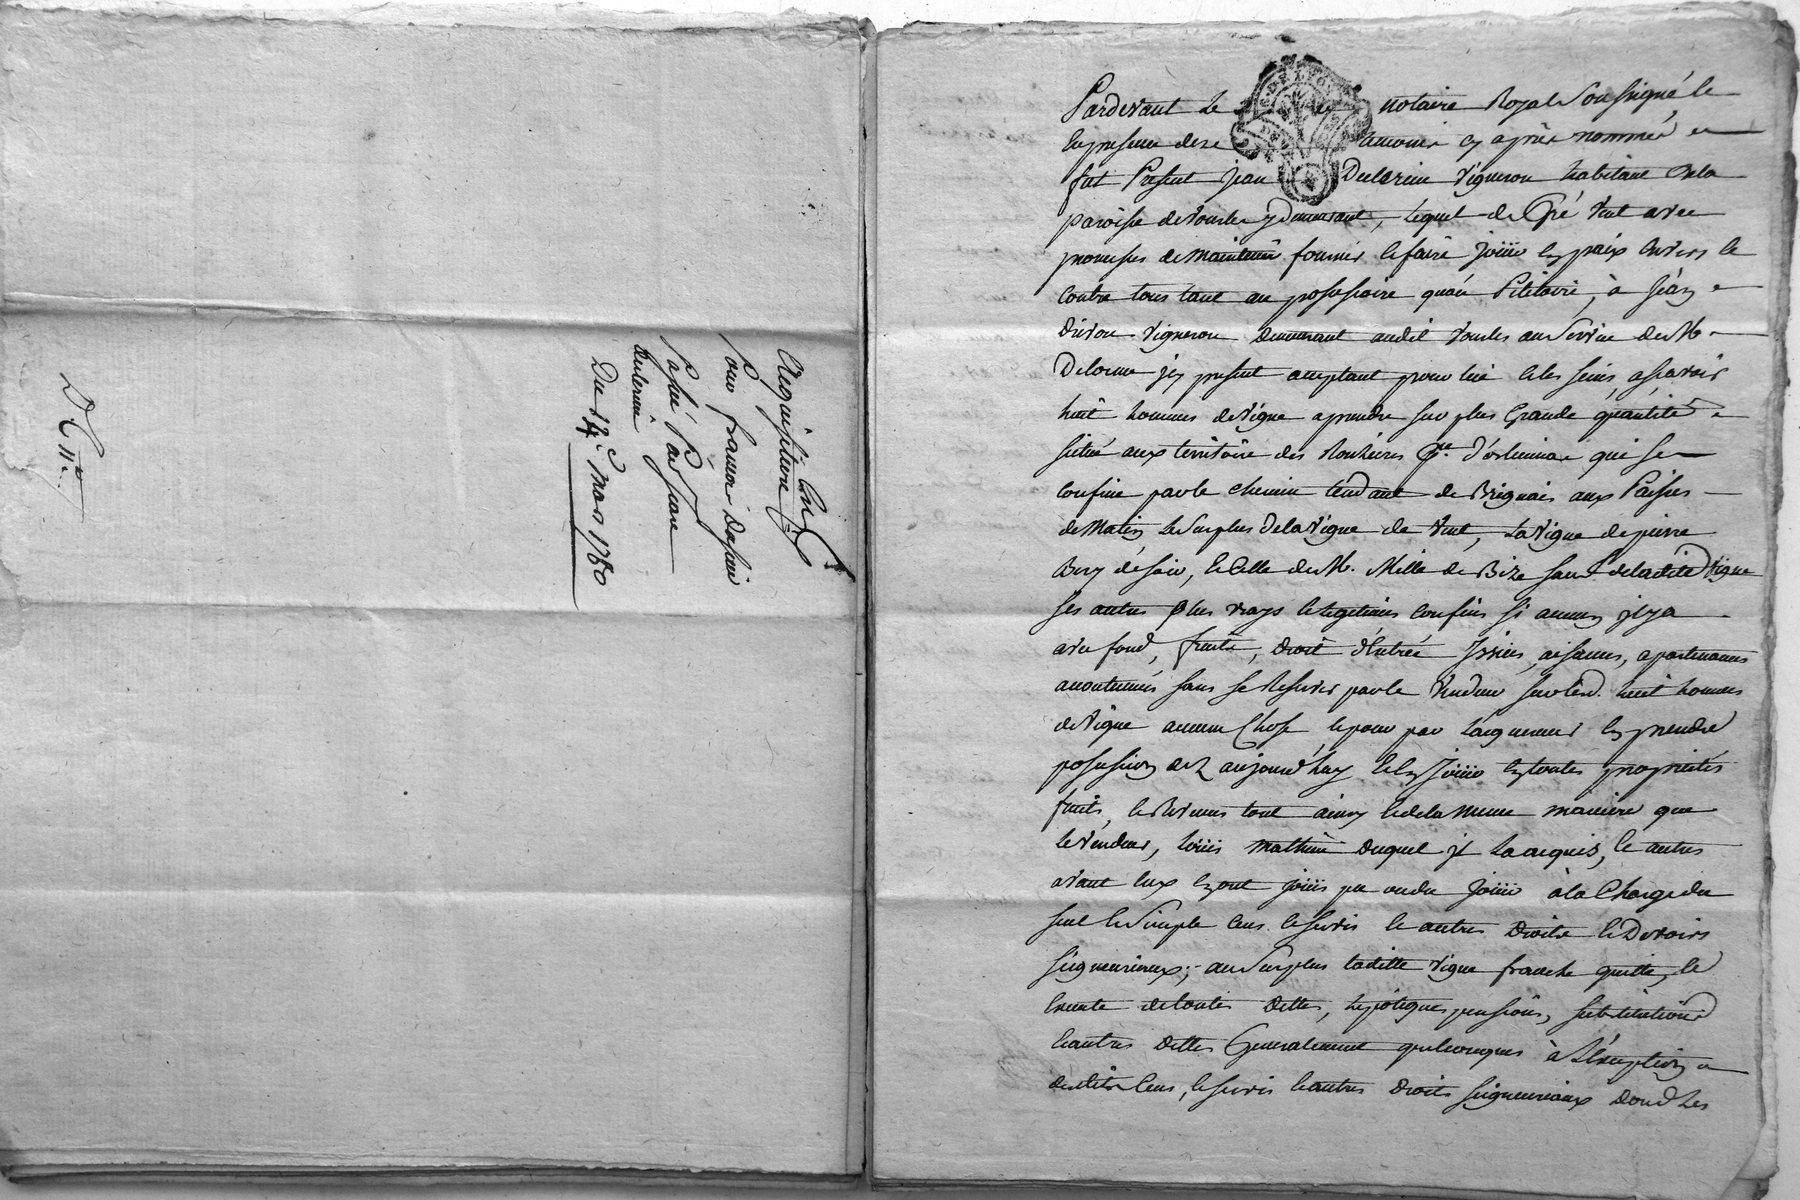 Acquisition
Pour
Passé Par Jean
Du 12e mars 1780
Pardevant Le notaire Royal Soussigné, le
En presence des témoins cy après nommés
fut Present jean vigneron habitant de la
paroisse de vourles y demeurant, Lequel de Gré vend avec
promesses de maintenir fournir et faire jöuir en paix envers et
Contre tous tant au possessoire qu'au Pétitoire, à jean
vigneron demeurant audit vourles au Service de Mr
Delorme icy present acceptant pour lui et les siens, ascavoir
huit hommes de vigne a prendre sur plus Grande quantité
situé aux territoire des que se
Confine par le chemin tendant de Brignais aux
de matin, Le Surplus de la vigne de vent, La vigne de pierre
de soir, et Celle de Mr. de Bize sauf de la dite vigne
ses autres plus vrays et legitimes confins si aucuns il y a
avec fond, fruits, droit d'Entrée Issües, aisances, apartenances
sans se Reserver par le vendeur sur lesd. huit hommes
de vigne aucune Chose, et pour par Lacquereur En prendre
possession dez aujourd'huy et En Jöuir En toutes proprietés
fruits, et Revenus tout ainsy et de la meme maniere que
Le vendeur, Loüis mathieu duquel il La acquis, et autres
avant Eux En ont joüis pu ou du joüir à la Charge du
seul et Simple Cens et servis et autres Droits et Devoirs
seigneuriaux; au Surplus laditte vigne franche quitte, et
Exempte de toutes dettes, hypoteques pensions, substitutions
Et autres dettes Generalement quelconques à L'Exception
desdits Cens, et servis Et autres Droits seigneuriaux dond Les